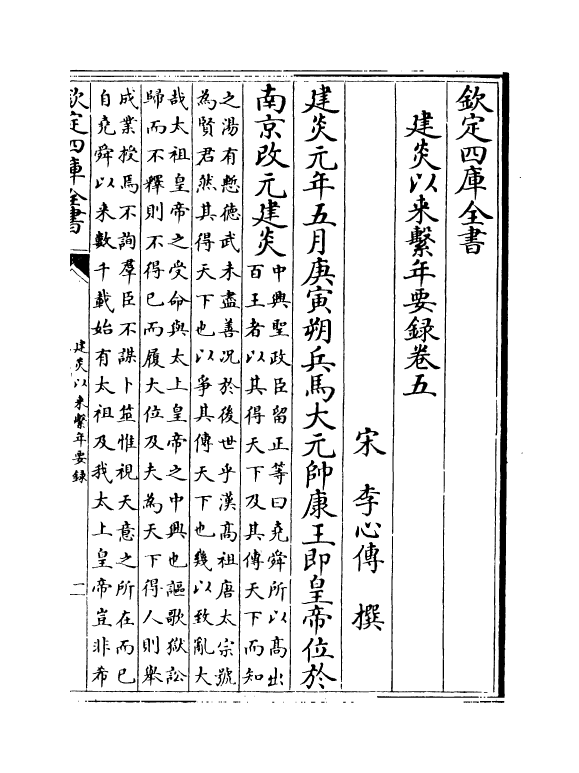 欽定四庫全書
建炎以来繫年要録卷五
宋 李心傳 撰
建炎元年五月庚寅朔兵馬大元帥康王即皇帝位於
南京改元建炎
中興聖政臣留正等曰堯舜所以髙出
百王者以其得天下及其傳天下而知
之湯有慙德武未盡善况於後世乎漢髙祖唐太宗號
為賢君然其得天下也以爭其傳天下也幾以致亂大
哉太祖皇帝之受命與太上皇帝之中興也謳歌獄訟
歸而不釋則不得已而履大位及夫為天下得人則舉
成業授焉不詢羣臣不謀卜筮惟視天意之所在而已
自堯舜以来數千載始有太祖及我太上皇帝豈非希
欽定四庫全書
建炎以来繫年要録
二